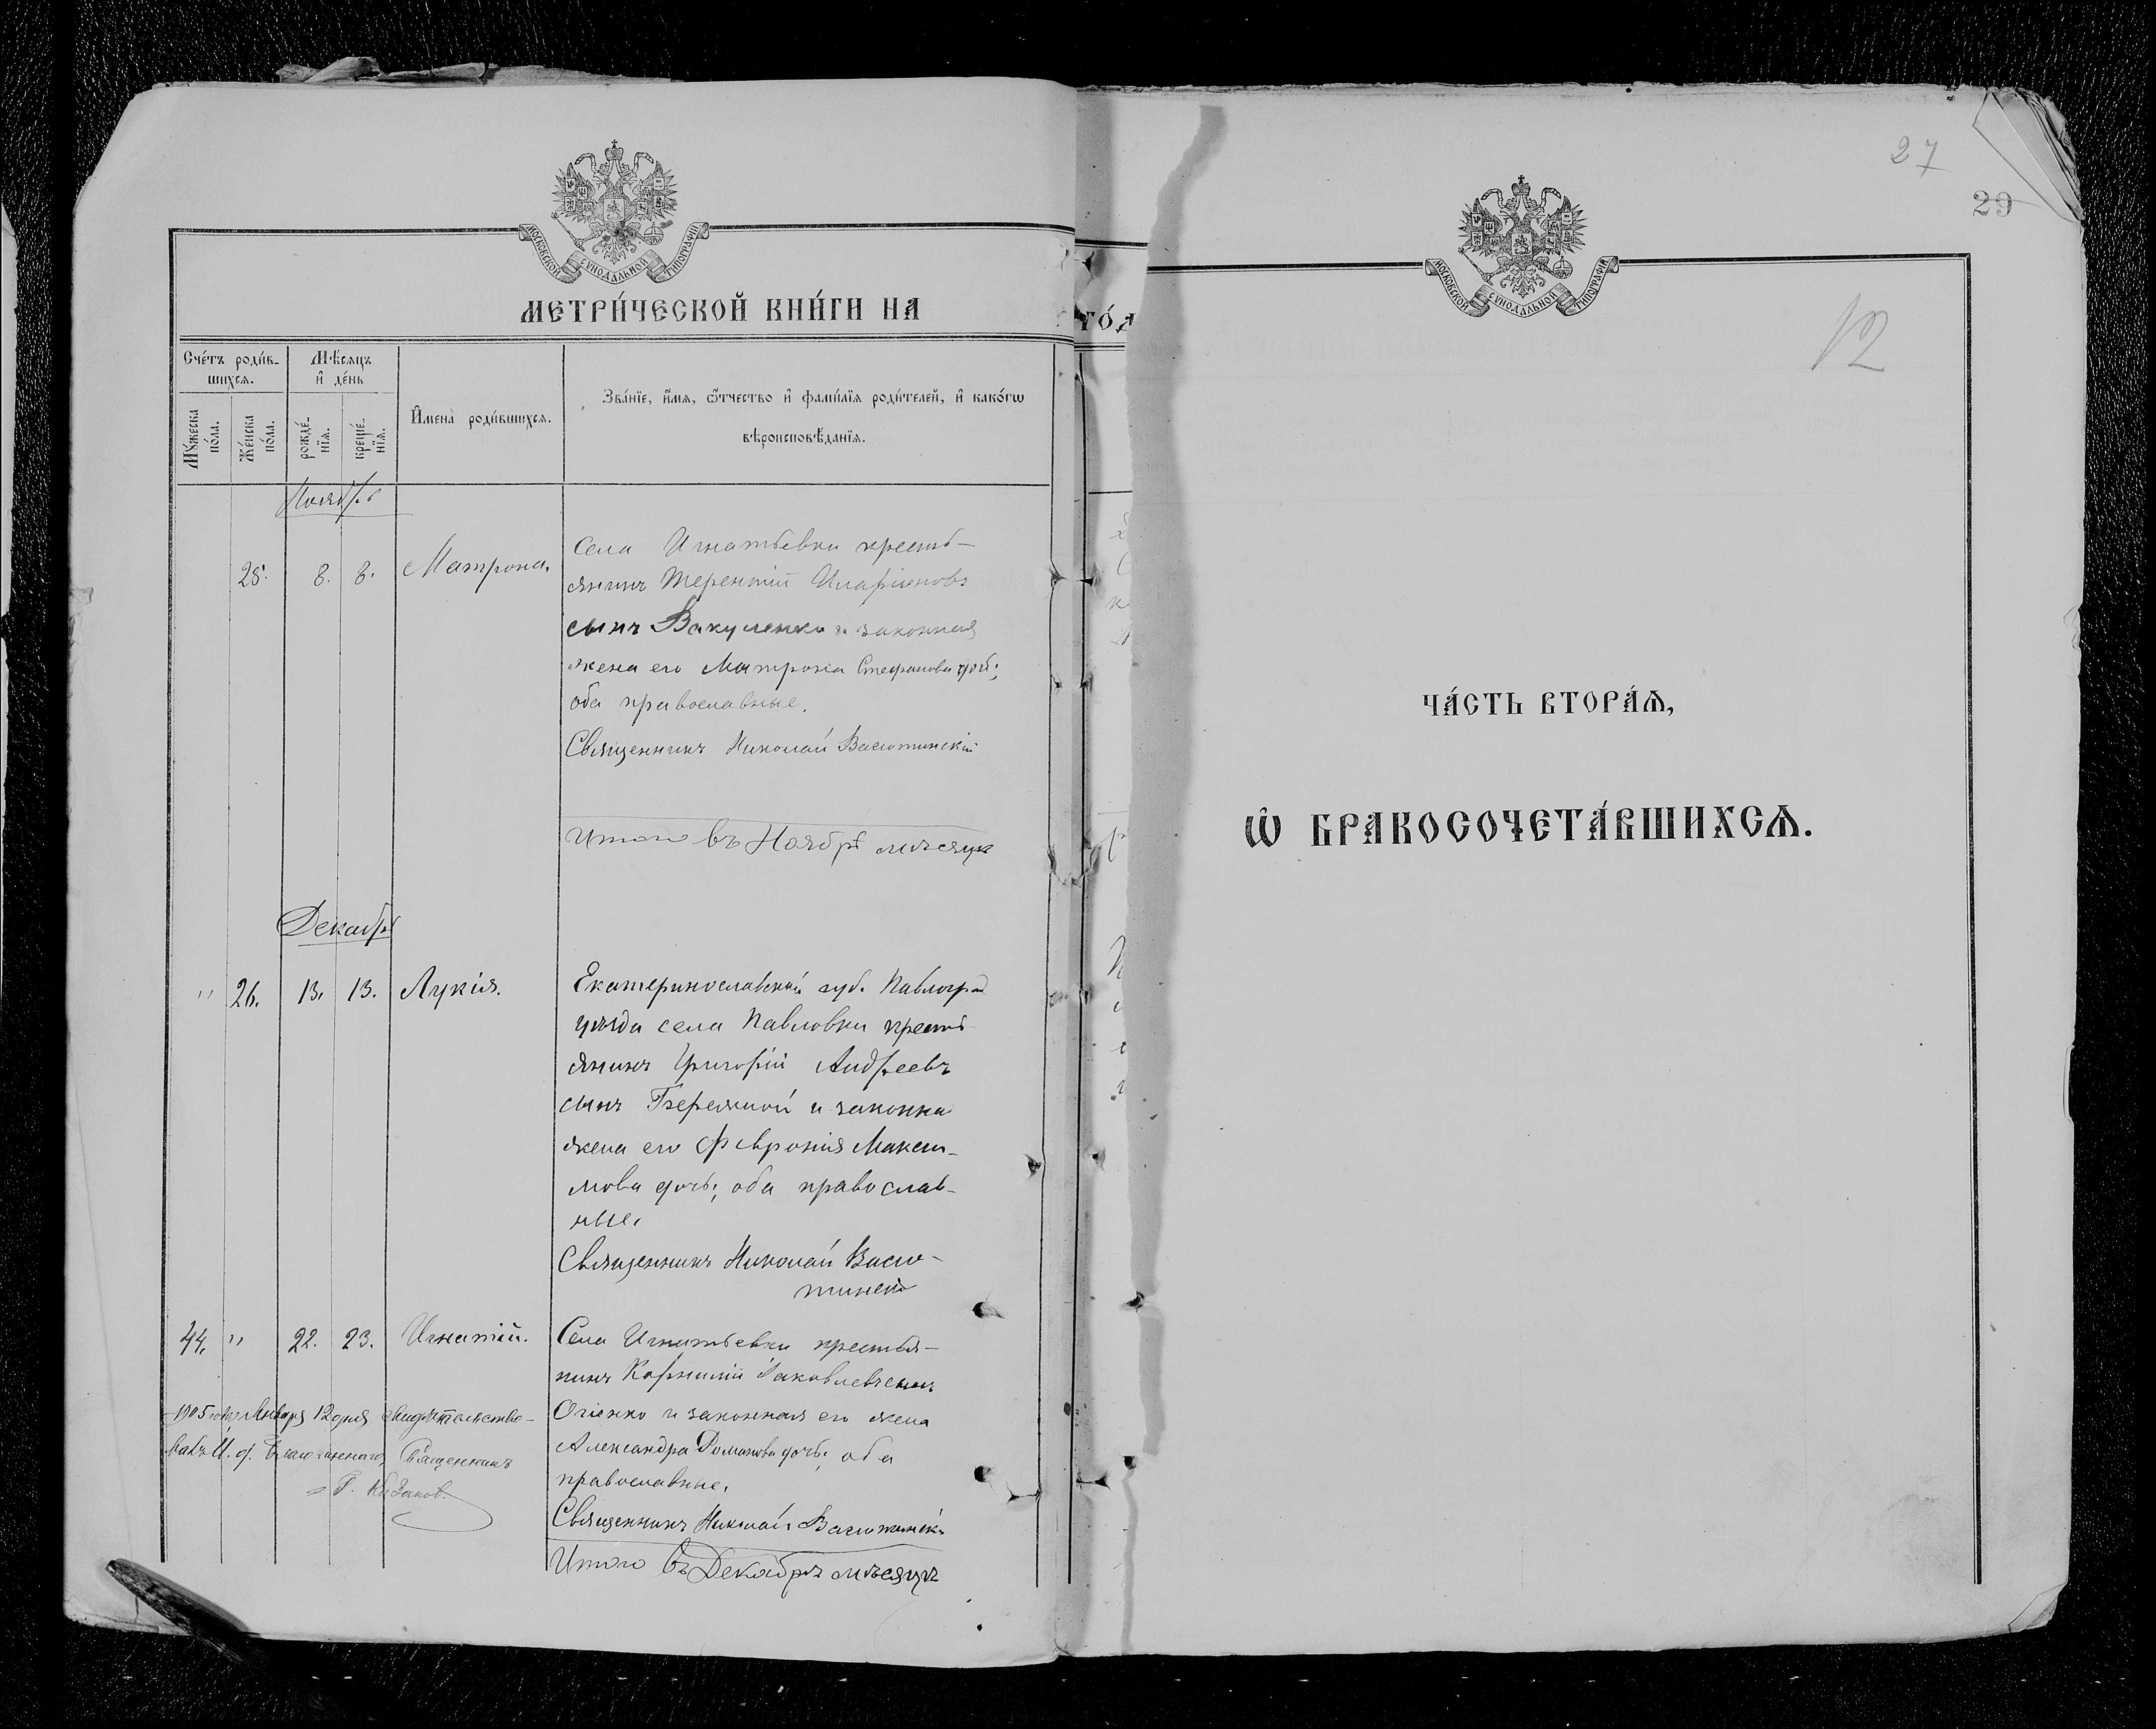 МОСКОВСКОЙ СѴНОДАЛЬНОЙ ТИПОГРАФІИ
МЕТРИ́ЧЕСКОЙ КНИ́ГИ НА
Сче́тъ роди́в-
шихся.
Мѣ́сяцъ
и҆ де́нь
Мꙋ́жеска
по́ла.
Же́нска
по́ла.
рожде́-
нїя.
креще́-
нїя.
И҆мена̀ роди́вшихся.
Зва́нїе, и҆́мя, ѻ҆́тчество и҆ фами́лїя роди́телей, и҆ како́гѡ
вѣроисповѣ́данїя.
Ноябрь
25. 8. 8. Матрона.
Села Игнатьевки кресть-
янинъ Терентій Иларіоновъ
сынъ Вакуленко и законная
жена его Матрона Стефанова дочь;
оба православные.
Священникъ Николай Васютинскій
Итого въ Ноябрѣ мѣсяцѣ
Декабрь
" 26. 13. 13. Лукія.
Екатеринославской губ. Павлоград
уѣзда села Павловки кресть-
янинъ Григорій Андреевъ
сынъ Бережной и законна
жена его Февронія Макси-
мова дочь; оба православ-
ные.
Священникъ Николай Васю-
тинскій
44. " 22. 23. Игнатій.
Села Игнатьевки крестья-
нинъ Корнилій Іаковлевъ сынъ
Огіенко и законная его жена
Александра Романова дочь; оба
православные.
Священникъ Николай Васютинскі
Итого въ Декабрѣ мѣсяцѣ
1905 года Января 12 дня свидѣтельство-
валъ И. д. Благочиннаго, Священникъ
Г. Казаков.
ГО́Д
27
29
МОСКОВСКОЙ СѴНОДАЛЬНОЙ ТИПОГРАФІИ
12
ЧА́СТЬ ВТОРА́Я,
Ѡ҆ БРАКОСОЧЕТА́ВШИХСЯ.